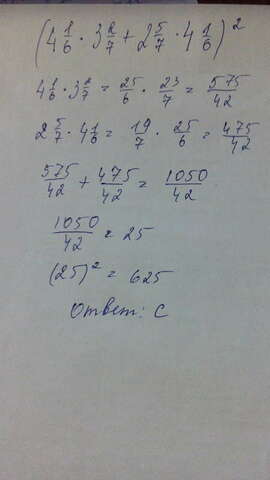 (4 1/6 · 3 2/7 + 2 5/7 · 4 1/6)²
4 1/6 · 3 2/7 = 25/6 · 23/7 = 575/42
2 5/7 · 4 1/6 = 19/7 · 25/6 = 475/42
575/42 + 475/42 = 1050/42
1050/42 = 25
(25)² = 625
Ответ: C